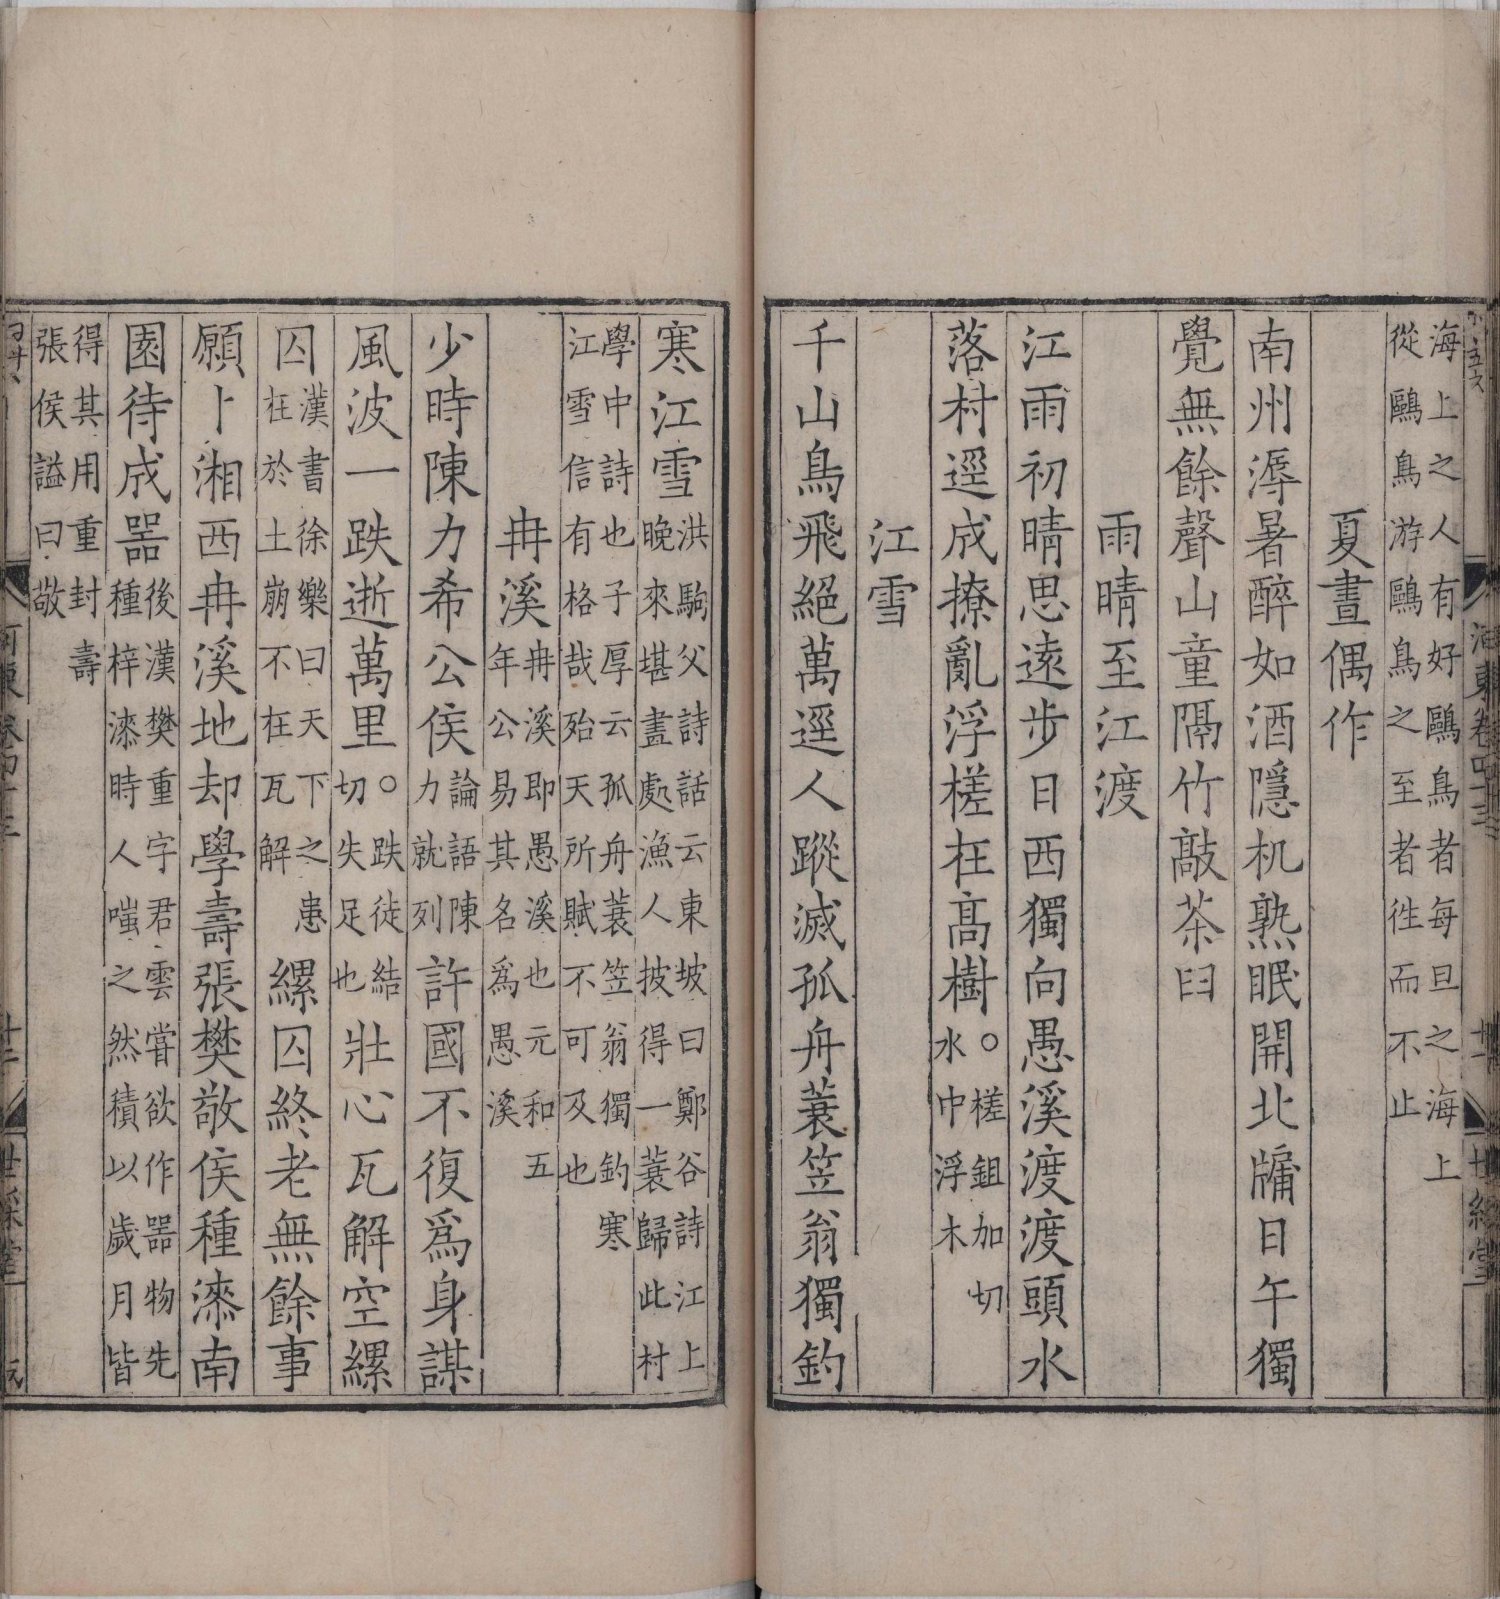 海上之人有好鷗鳥者每旦之海上
從鷗鳥游鷗鳥之至者徃而不止
夏晝偶作
南州溽暑醉如酒隱机熟眠開北牖日午獨
覺無餘聲山童隔竹敲茶臼
雨晴至江渡
江雨初晴思遠步日西獨向愚溪渡渡頭水
落村逕成撩亂浮槎在髙樹○槎鉏加切
水中浮木
江雪
千山鳥飛絕萬逕人蹤滅孤舟蓑笠翁獨釣
寒江雪洪駒父詩話云東坡曰鄭谷詩江上
晚來堪畫處漁人披得一蓑歸此村
學中詩也子厚云孤舟蓑笠翁獨釣寒
江雪信有格哉殆天所賦不可及也
冉溪冉溪即愚溪也元和五
年公易其名爲愚溪
少時陳力希公侯論語陳
力就列許國不復爲身謀
風波一跌逝萬里○跌徒結
切失足也壯心瓦解空縲
囚漢書徐樂曰天下之患
在於土崩不在瓦解縲囚終老無餘事
願卜湘西冉溪地却學壽張樊敬侯種漆南
園待成器後漢樊重字君雲嘗欲作器物先
種梓漆時人嗤之然積以歲月皆
得其用重封壽
張侯謚曰敬